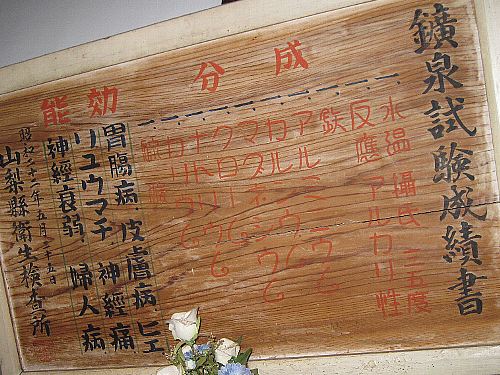 鑛泉試験成績書
成分
水温攝氏三五度
反應アルカリ性
鉄
アルミニウム
カルシウム
マグネシウム
クロール
ナトリウム
カリウム
硫酸
効能
胃腸病 皮膚病 ヒエ
リュウマチ 神經痛
神經衰弱 婦人病
昭和二十二年五月二十五日
山梨縣衛生検査所